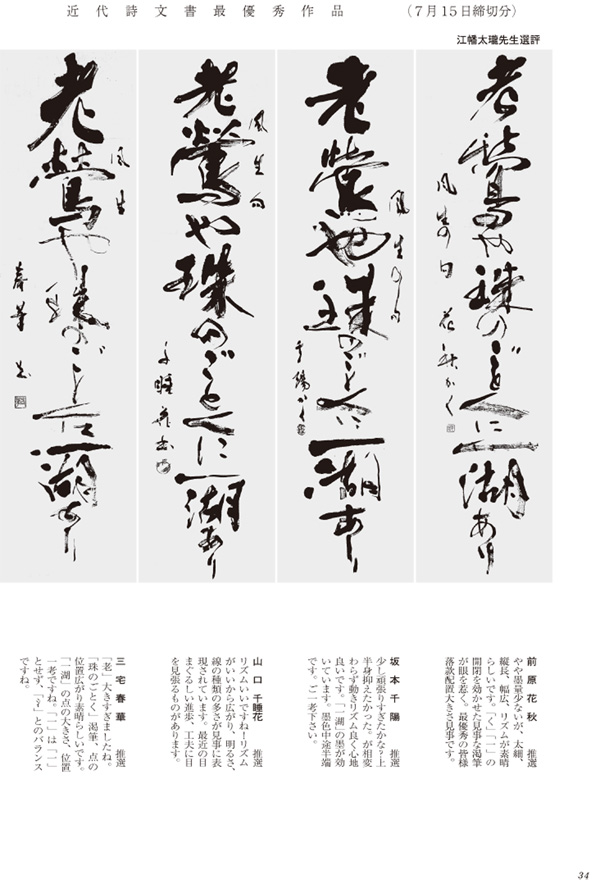 近代詩文書最優秀作品
（7月15日締切分）
江幡太瓏先生選評
老鶯や珠のごとくに一湖あり
風生の句 花秋かく
老鶯や珠のごとくに一湖あり
風生の句
千陽かく
老鶯や珠のごとくに一湖あり
風生句
千睡花書
老鶯や珠のごとくに一湖あり
風生
春華書
前原花秋 推選
やや墨量少ないが、太細、
縦長、幅広、リズムが素晴
らしいです。「く」「一」の
開閉を効かせた見事な渇筆
が眼を惹く。最優秀の皆様
落款配置大きさ見事です。
坂本千陽 推選
少し頑張りすぎたかな？上
半身抑えたかった。が相変
わらず動きリズム良く心地
良いです。「一湖」の墨が効
いています。墨色中途半端
です。ご一考下さい。
山口千睡花 推選
リズムいいですね！リズム
がいいから広がり、明るさ、
線の種類の多さが見事に表
現されています。最近の目
まぐるしい進歩、工夫に目
を見張るものがあります。
三宅春華 推選
「老」大きすぎましたね。
「珠のごとく」渇筆、点の
位置広がり素晴らしいです。
「一湖」の点の大きさ、位置
一考ですね。「一」は「一」
とせず、「ミ」とのバランス
ですね。
34